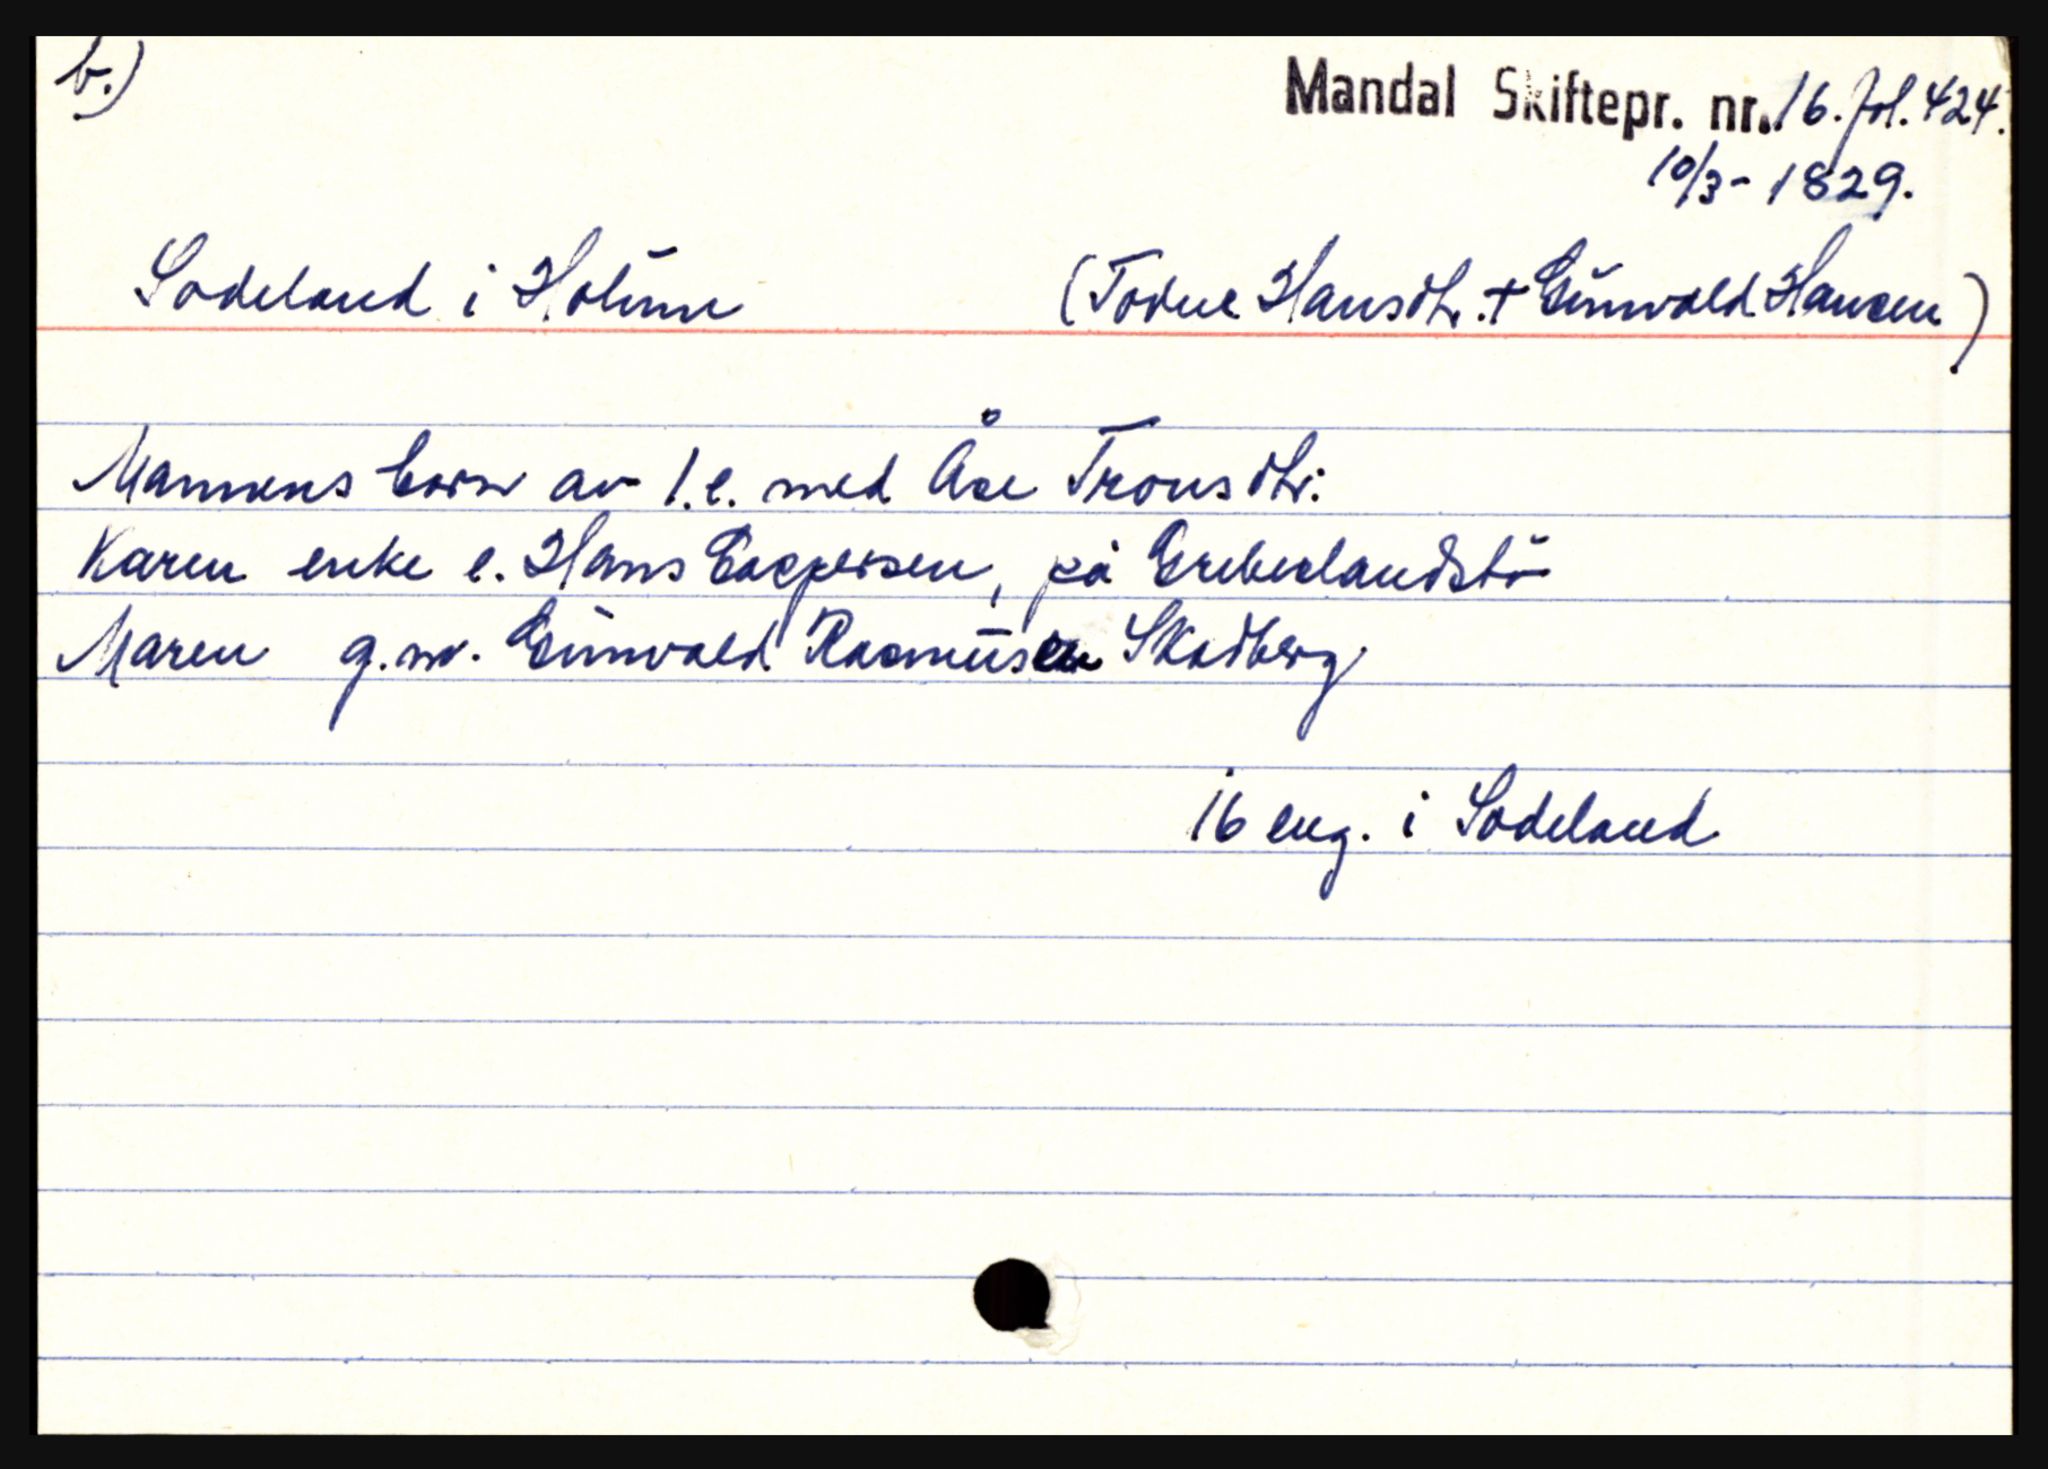 b.)
Mandal Skiftepr. nr. 16. fol. 424.
10/3 - 1829.
Sodeland i Holum (Todne Hansdtr. + Gunvald Hansen)
Mannens born av 1. e. med Åse Tronsdtr:
Karen enke e. Hans Caspersen, på
Maren g.m. Gunvald Rasmusen Skadberg
16 eng. i Sodeland